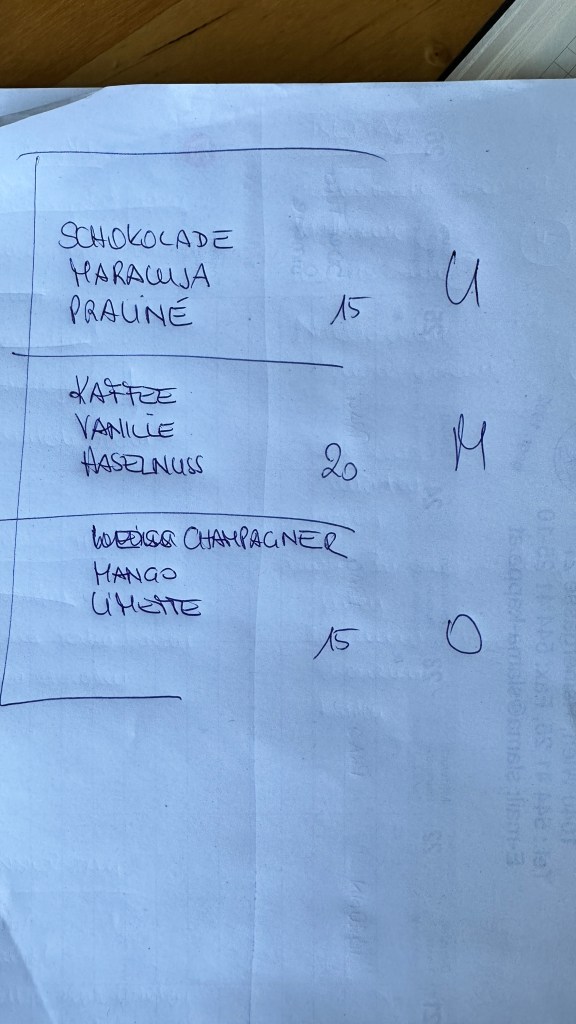 SCHOKOLADE
MARACUJA
PRALINÉ 15 U
KAFFEE
VANILLE
HASELNUSS 20 M
CHAMPAGNER
MANGO
LIMETTE
15 O